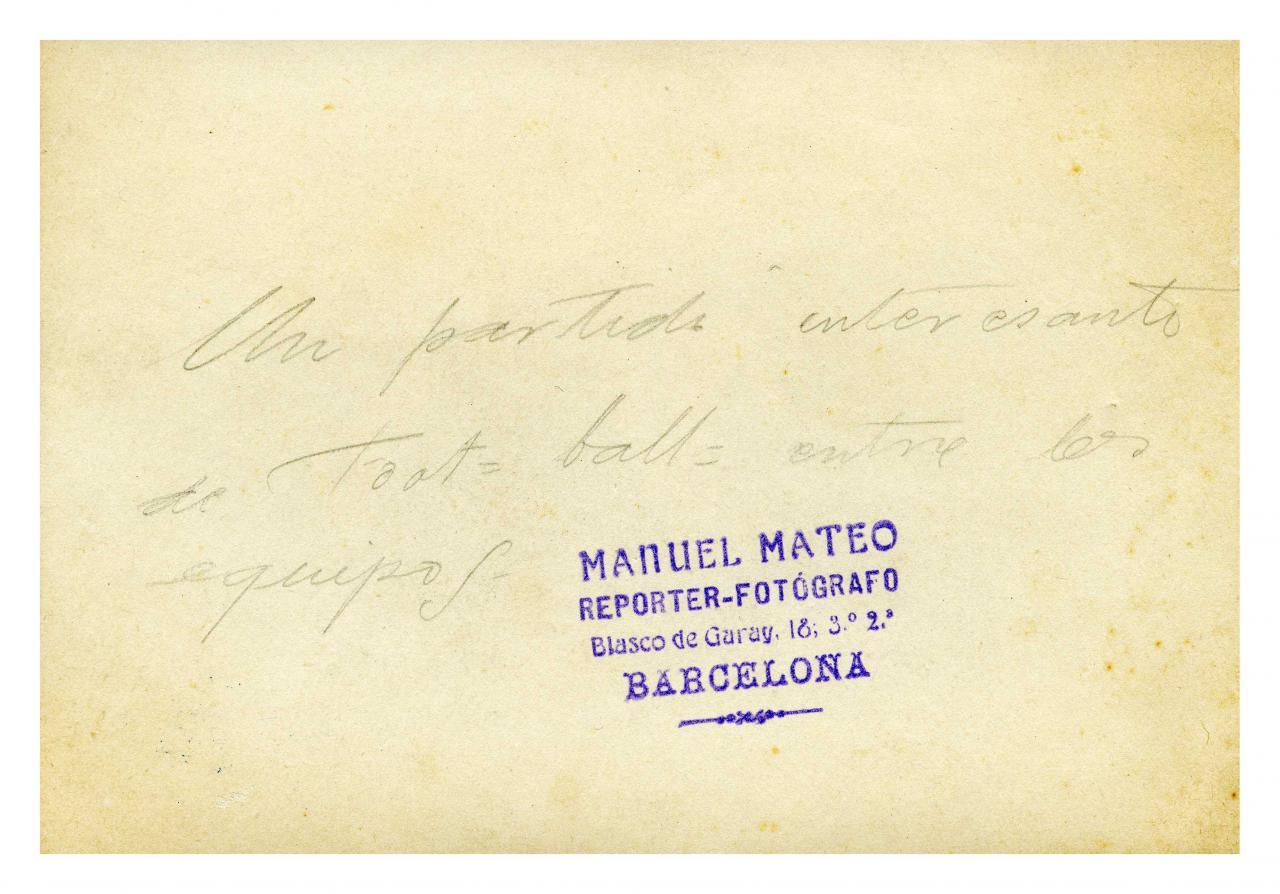 Un partido interesante
de Foot= ball= entre los
equipos.
MANUEL MATEO
REPORTER-FOTÓGRAFO
Blasco de Garay, 18; 3.º 2.ª
BARCELONA